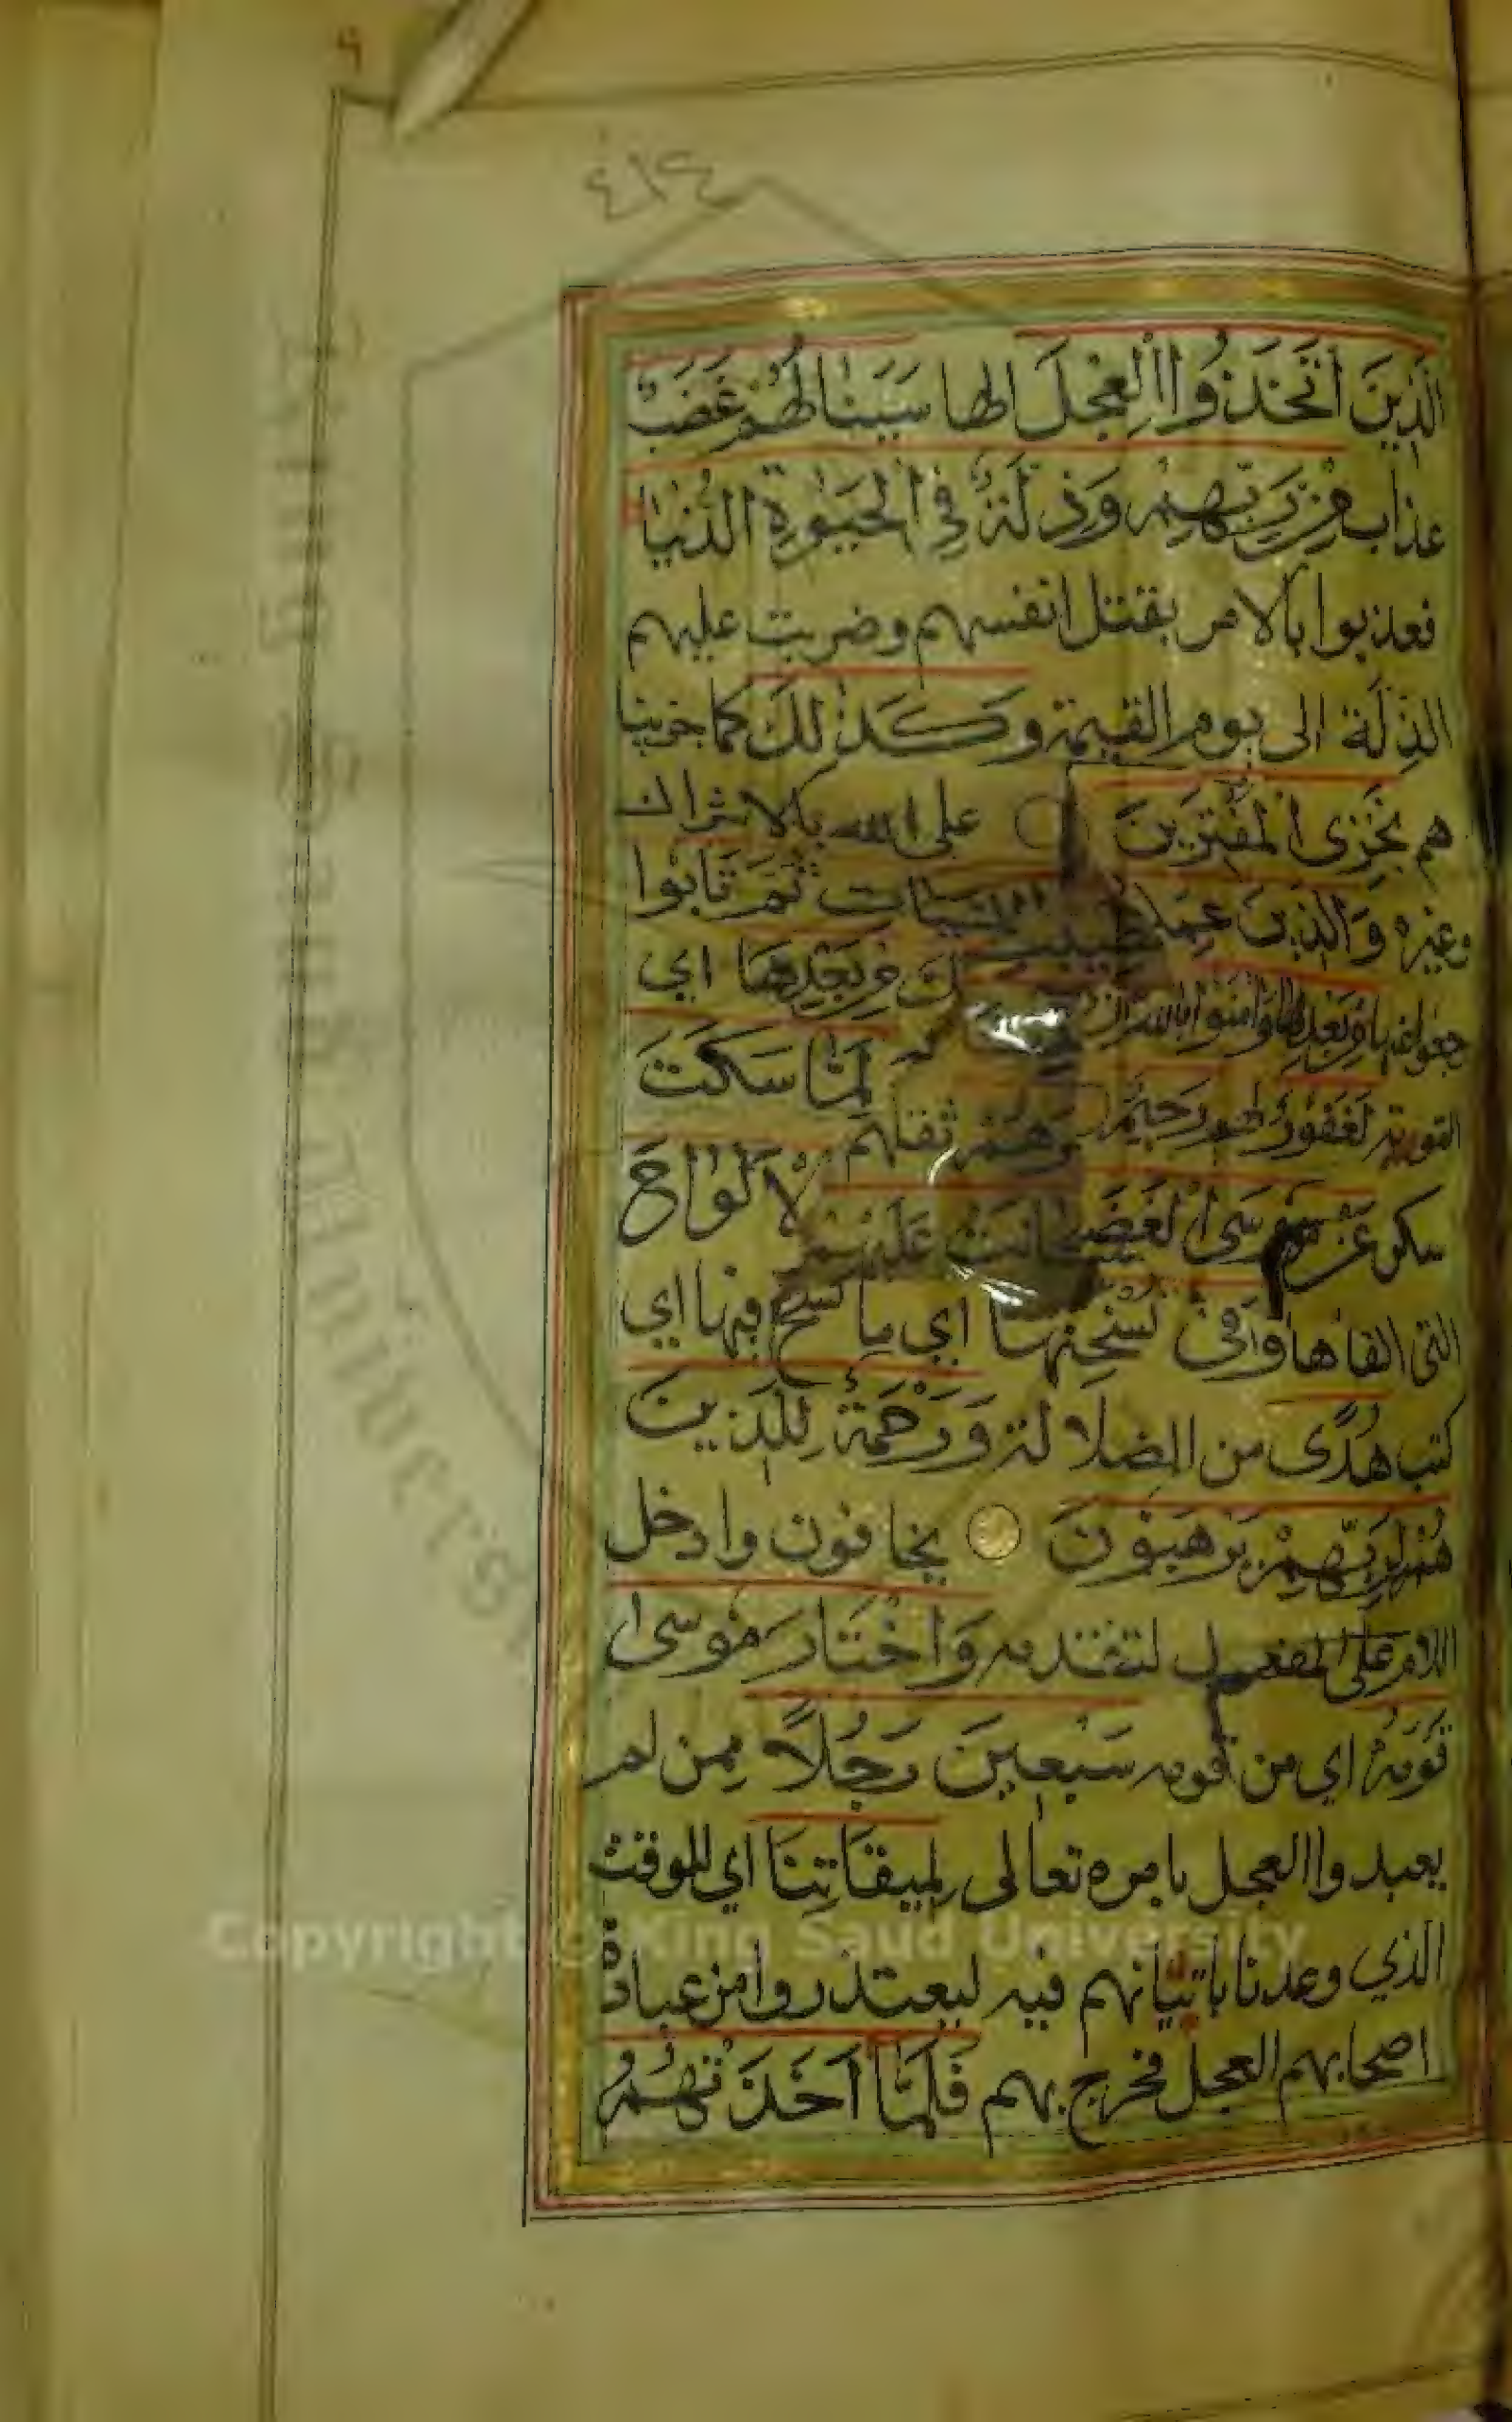 ٤١٤
الَّذِينَ اتَّخَذُوا الْعِجْلَ الها سَيَنَالُهُمْ غَضَبٌ
عذاب مِنْ رَبِّهِمْ وَذِلَّةٌ فِي الْحَيٰوةِ الدُّنْيَا
فعذبوا بالامر بقتل انفسهم وضربت عليهم
الذِلَّة الى يوم القيمة وَكَذٰلِكَ كما جزينا
هم نَجْزِى الْمُفْتَرِينَ على الله بالاشراك
وغيره وَالَّذِينَ عَمِلُوا السَّيِّئَاتِ ثُمَّ تَابُوا
رجعوا عنها مِنْ بَعْدِهَا وَاٰمَنُوا بالله مِنْ بَعْدِهَا اي
التوبة لَغَفُورٌ لهم رَحِيمٌ بهم وَلَمَّا سَكَتَ
سكن عَنْ مُوسَى الْغَضَبُ الْاَلْوَاحَ
التى القاها وَفِي نُسْخَتِهَا اي ما نسخ فيها اي
كتب هُدًى من الضلالة وَرَحْمَةٌ لِلَّذِينَ
هُمْ لِرَبِّهِمْ يَرْهَبُونَ يخافون وادخل
اللام على المفعول لتقدمه وَاخْتَارَ مُوسٰى
قَوْمَهُ اي من قومه سَبْعِينَ رَجُلًا ممن لم
يعبدوا العجل بامره تعالى لِمِيقَاتِنَا اي للوقت
الذي وعدنا باتيانهم فيه ليعتذروا من عبادة
اصحابهم العجل فخرج بهم فَلَمَّا اَخَذَتْهُمُ
Copyright © King Saud University